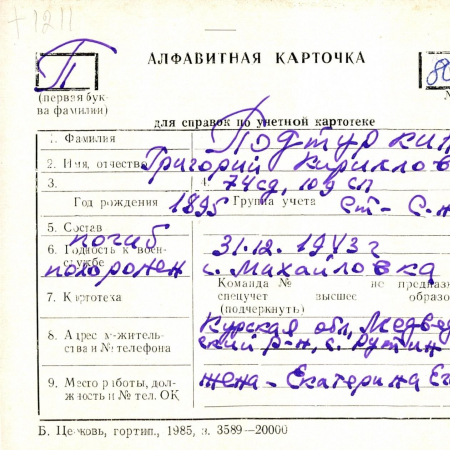 +1211
П
АЛФАВИТНАЯ КАРТОЧКА
80
(первая бук-
ва фамилии)
для справок по учетной картотеке
1. Фамилия Подтуркин
2. Имя, отчество Григорий Кириллов
3. 4. 74 сд, 109 сп
Год рождения 1895 Группа учета ст-с-н
5. Состав погиб
6. Годность к воен- 31.12.1943 г
ской службе похоронен с. Михайловка
Команда № не предназ
7. Картотека спецучет высшее образо
(подчеркнуть)
Курская обл, Медве
8. Адрес жительь- ский р-н, с.
ства и № телефона
9. Место работы, дол- жена - Екатерина Ег
жность и № тел. ОК
Б. Церковь, гортип., 1985, з. 3589—20000